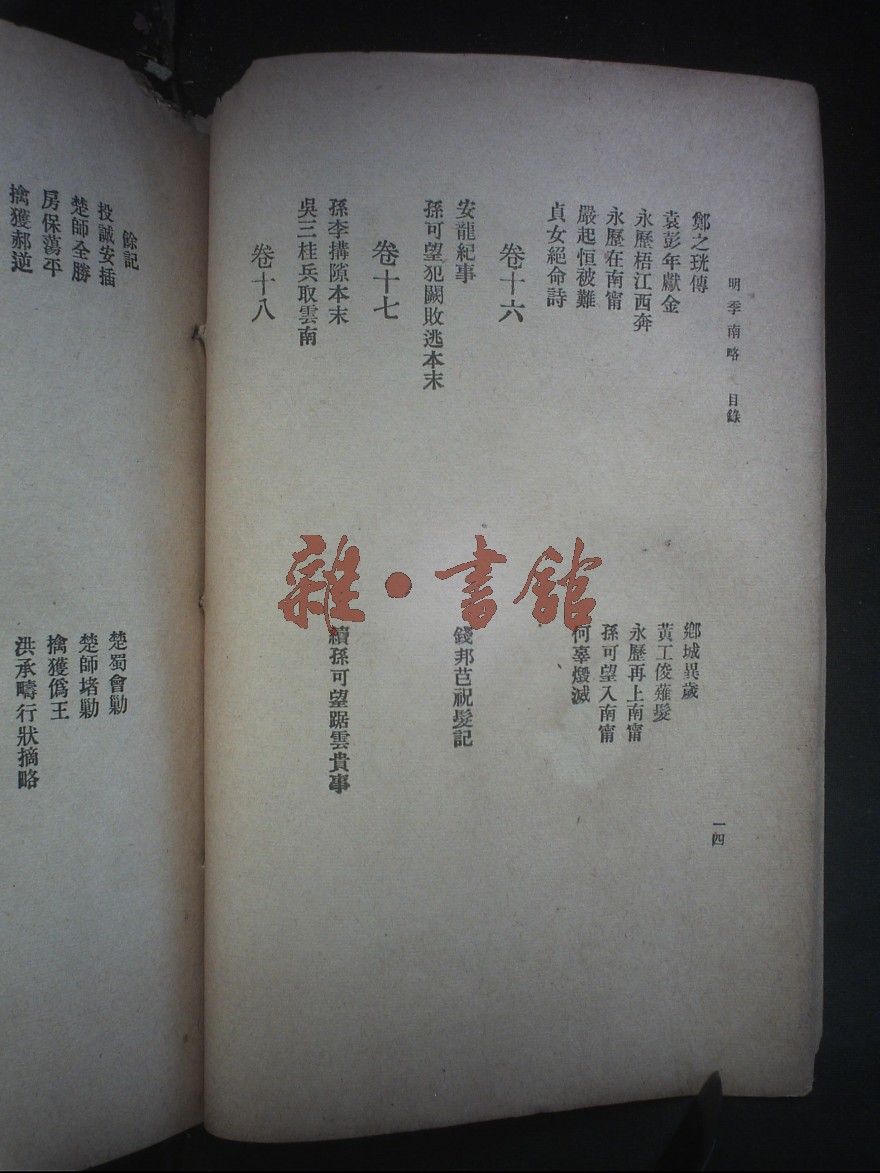 明季南略 目錄
一四
鄭之珖傳
鄉城異歲
袁彭年獻金
黃工俊薙髮
永歷梧江西奔
永歷再上南甯
永歷在南甯
孫可望入南甯
嚴起恒被難
何辜燬滅
貞女絕命詩
卷十六
安龍紀事
錢邦芑祝髮記
孫可望犯闕敗逃本末
卷十七
孫李搆隙本末
續孫可望踞雲貴事
吳三桂兵取雲南
卷十八
餘記
楚蜀會勦
投誠安插
楚師堵勦
楚師全勝
擒獲僞王
房保蕩平
洪承疇行狀摘略
擒獲郝逆
雜·書館